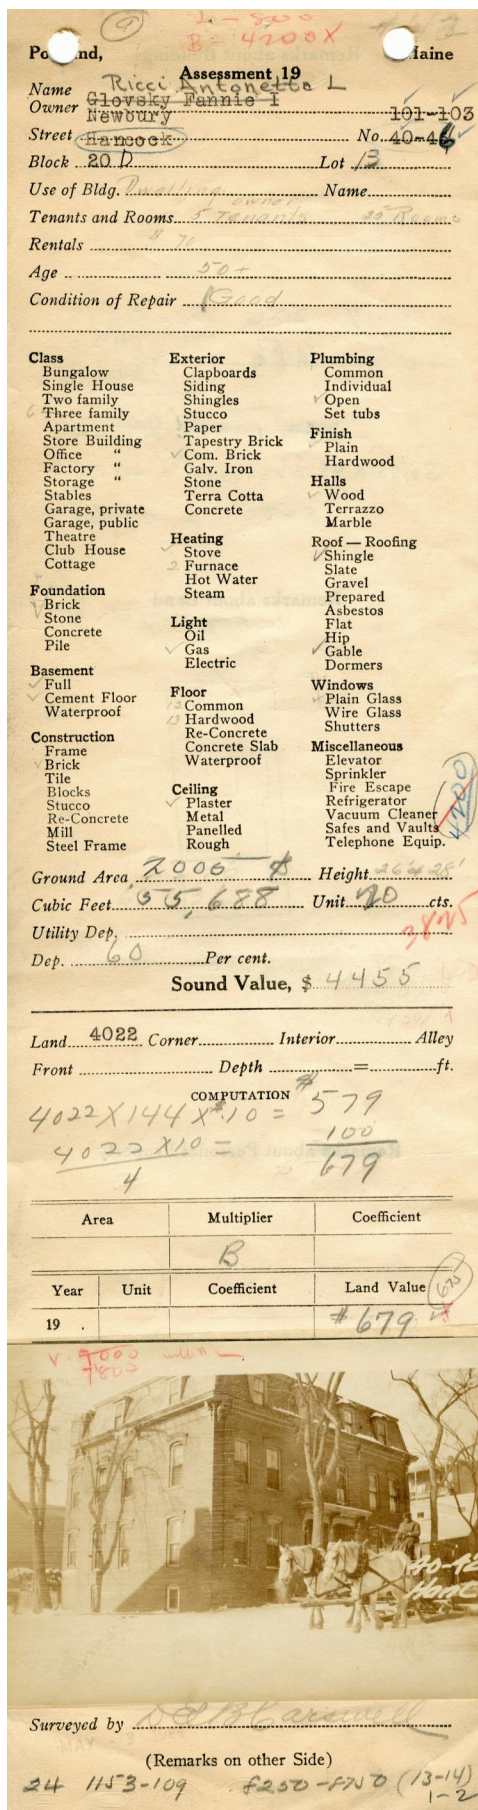 L - 800
B - 4200X
Portland, Maine
Assessment 19
Ricci Antonetta L
Name
Owner Glovsky Fannie I
Newbury 101-103
Street Hancock No. 40-46
Block 20 D Lot 13
Use of Bldg. Dwelling Name
owner
Tenants and Rooms 5 Tenants 25 Rooms
Rentals $ 70
Age 50+
Condition of Repair Good
Class
Bungalow
Single House
Two family
6 Three family
Apartment
Store Building
Office "
Factory "
Storage "
Stables
Garage, private
Garage, public
Theatre
Club House
Cottage
Foundation
Brick
Stone
Concrete
Pile
Basement
Full
Cement Floor
Waterproof
Construction
Frame
Brick
Tile
Blocks
Stucco
Re-Concrete
Mill
Steel Frame
Exterior
Clapboards
Siding
Shingles
Stucco
Paper
Tapestry Brick
Com. Brick
Galv. Iron
Stone
Terra Cotta
Concrete
Heating
Stove
2 Furnace
Hot Water
Steam
Light
Oil
Gas
Electric
Floor
12 Common
13 Hardwood
Re-Concrete
Concrete Slab
Waterproof
Ceiling
Plaster
Metal
Panelled
Rough
Plumbing
Common
Individual
Open
Set tubs
Finish
Plain
Hardwood
Halls
Wood
Terrazzo
Marble
Roof — Roofing
Shingle
Slate
Gravel
Prepared
Asbestos
Flat
Hip
Gable
Dormers
Windows
Plain Glass
Wire Glass
Shutters
Miscellaneous
Elevator
Sprinkler
Fire Escape
Refrigerator
Vacuum Cleaner
Safes and Vaults
Telephone Equip.
4200
Ground Area 2006 Height 26' & 28'
Cubic Feet 55,688 Unit 20 cts.
3825
Utility Dep.
Dep. 60 Per cent.
Sound Value, $ 4455
Land 4022 Corner Interior Alley
Front Depth = ft.
COMPUTATION
4022 X 144 X $.10 = $ 579
4022 X 10 = 100
4 679
Area Multiplier Coefficient
B
Year Unit Coefficient Land Value 675
19 . $ 679
V. 9000
7800
40-42
Hanc
Surveyed by D E B Carswell
(Remarks on other Side)
24 1153-109 8250-8750 (13-14)
1-2